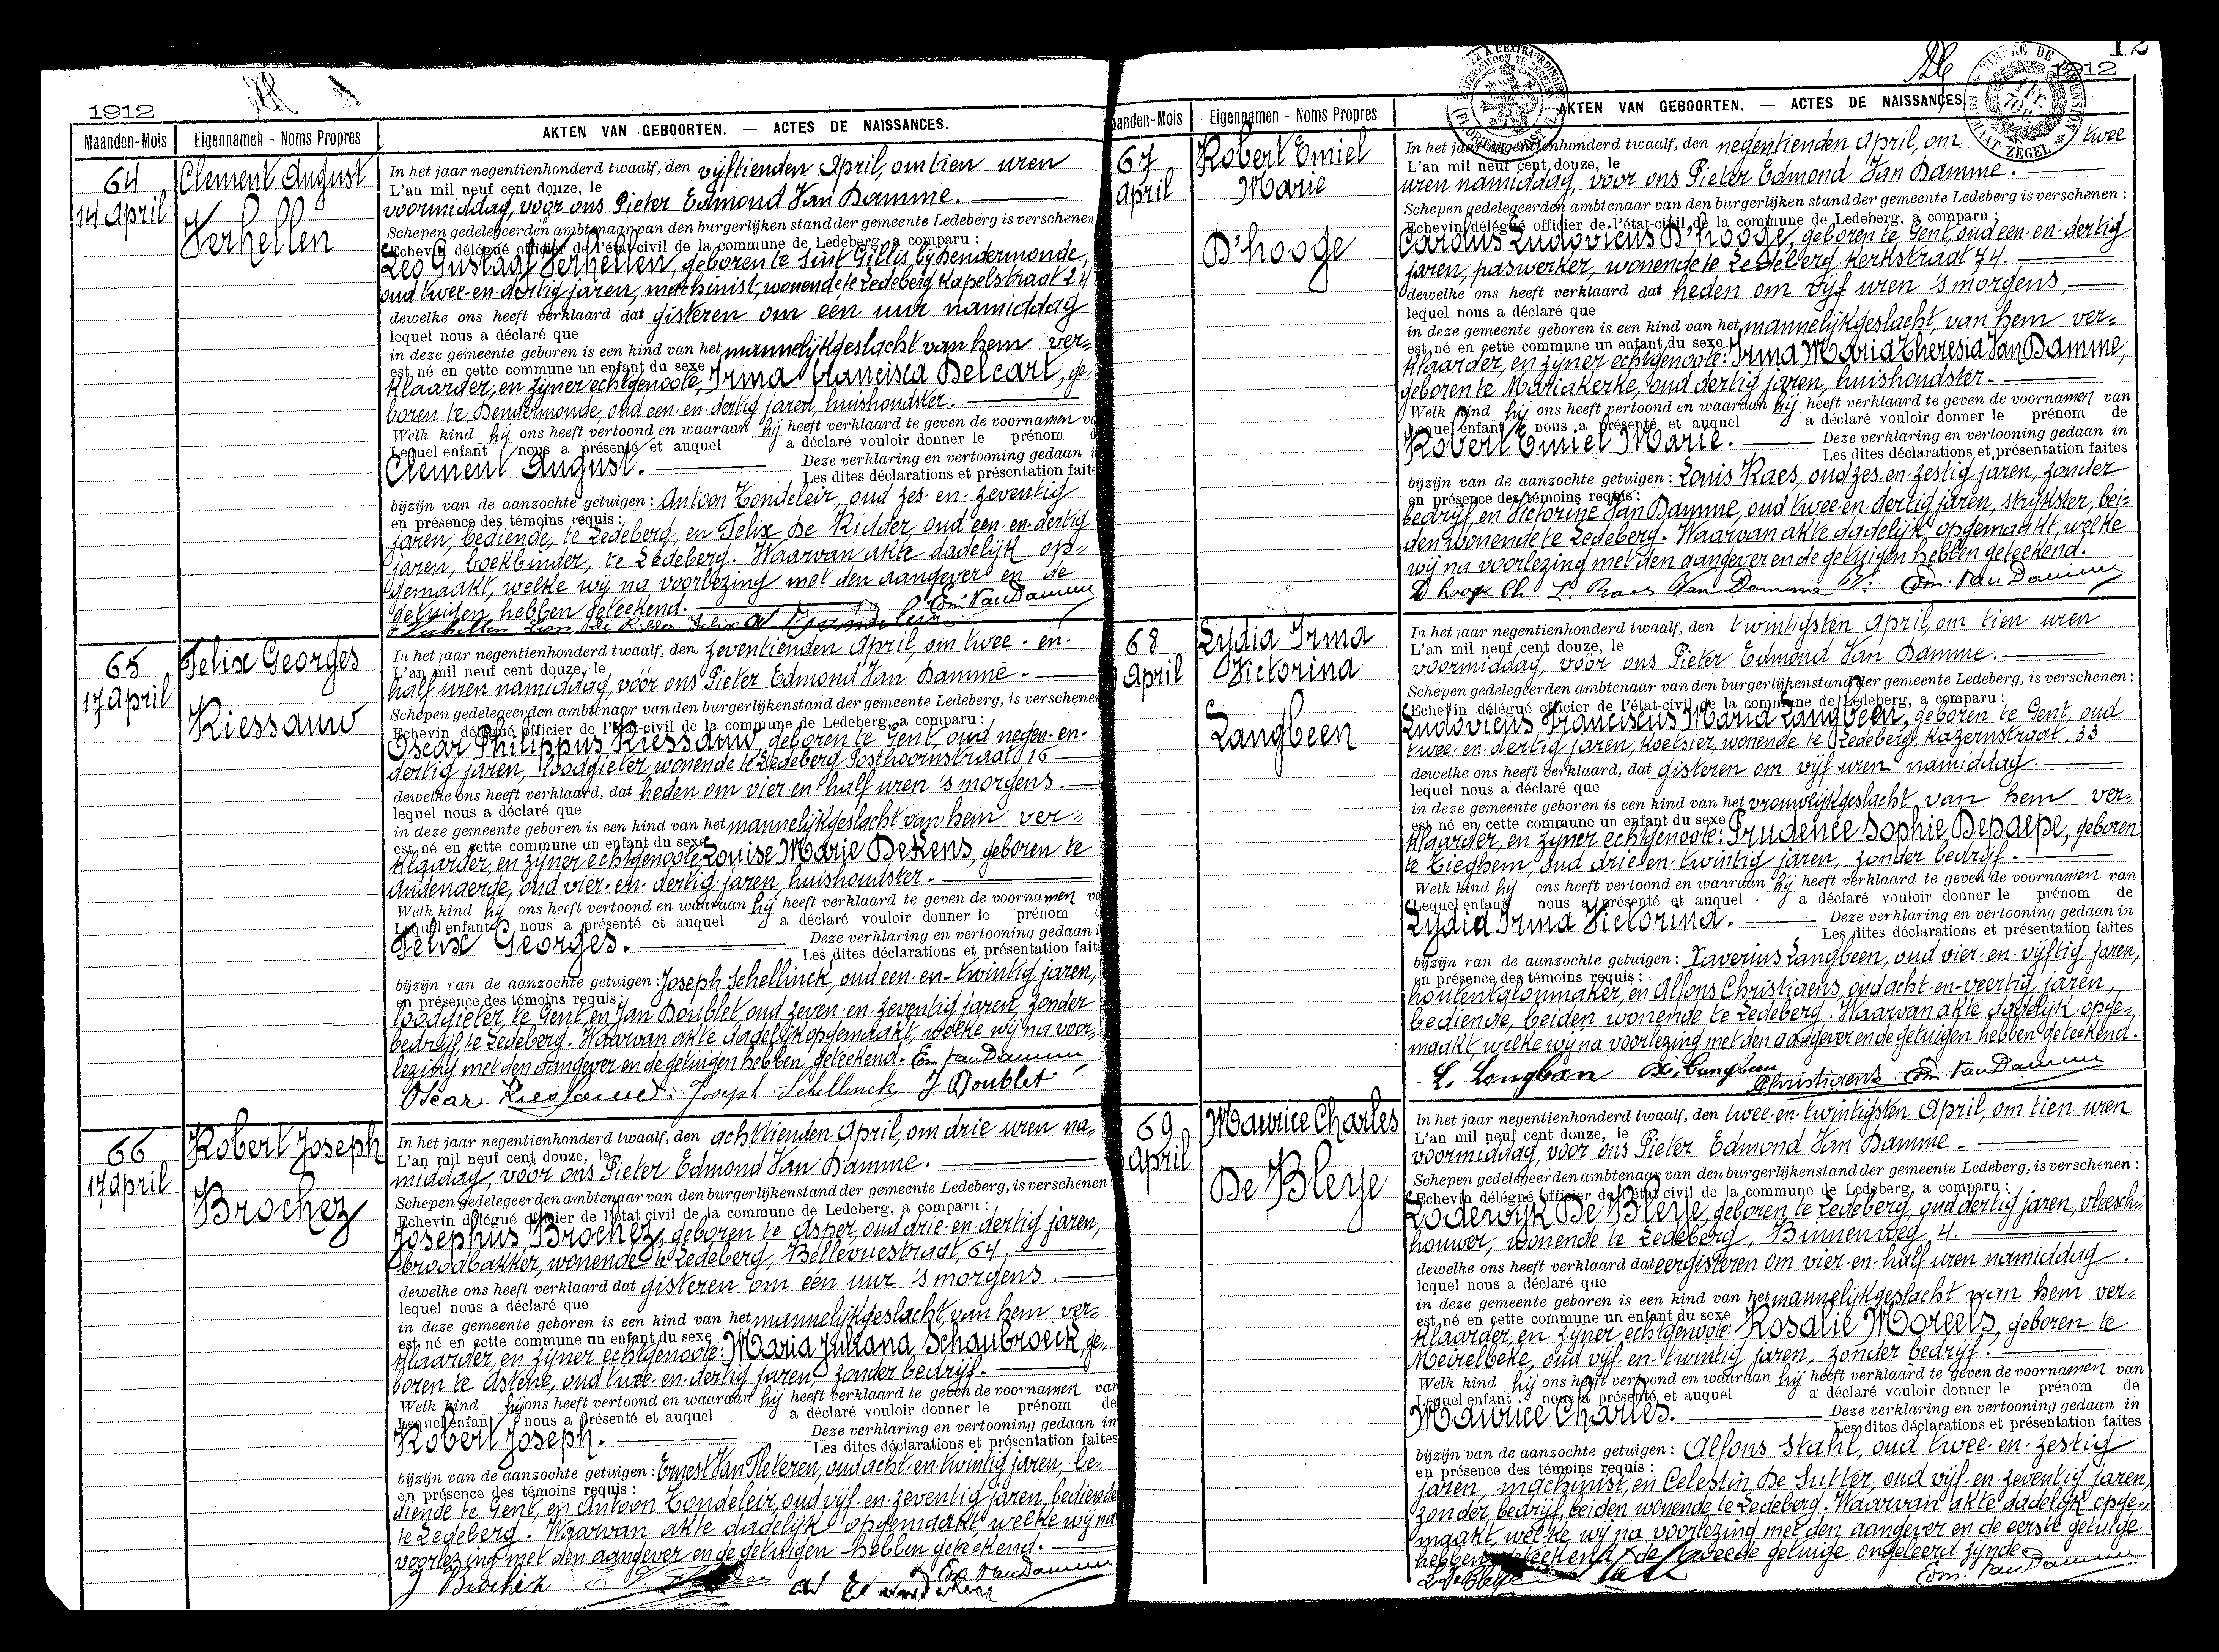 1912
Maanden-Mois
Eigennamen - Noms Propres
AKTEN VAN GEBOORTEN. — ACTES DE NAISSANCES.
64
14 April
Clement August
Verhellen
In het jaar negentienhonderd twaalf, den vijftienden April, om tien uren
L'an mil neuf cent douze, le
voormiddag, voor ons Pieter Edmond Van Damme.
Schepen gedelegeerden ambtenaar van den burgerlijken stand der gemeente Ledeberg is verschenen
Echevin délégué officier de l'état-civil de la commune de Ledeberg, a comparu :
Leo Gustaaf Verhellen, geboren te Sint Gillis bij Dendermonde,
oud twee-en-dertig jaren, machinist, wonende te Ledeberg Kapelstraat 24
dewelke ons heeft verklaard dat gisteren om één uur namiddag
lequel nous a déclaré que
in deze gemeente geboren is een kind van het mannelijkgeslacht van hem ver=
est né en cette commune un enfant du sexe
klaarder, en zijner echtgenoote, Irma Francisca Delcart, ge=
boren te Dendermonde, oud een-en-dertig jaren, huishoudster.
Welk kind hij ons heeft vertoond en waaraan hij heeft verklaard te geven de voornamen
Lequel enfant nous a présenté et auquel a déclaré vouloir donner le prénom
Clement August.
Deze verklaring en vertooning gedaan
Les dites déclarations et présentation faite
bijzijn van de aanzochte getuigen : Antoon Tondeleir, oud zes-en-zeventig
en présence des témoins requis :
jaren, bediende, te Ledeberg, en Felix De Ridder, oud een-en-dertig
jaren, boekbinder, te Ledeberg. Waarvan akte dadelijk op=
gemaakt, welke wij na voorlezing met den aangever en de
getuigen hebben geteekend.
Edm. Van Damme
65
17 April
Felix Georges
Kiessauw
In het jaar negentienhonderd twaalf, den zeventienden April, om twee-en-
L'an mil neuf cent douze, le
half uren namiddag, vóór ons Pieter Edmond Van Damme.
Schepen gedelegeerden ambtenaar van den burgerlijkenstand der gemeente Ledeberg, is verschenen
Echevin délégué officier de l'état-civil de la commune de Ledeberg, a comparu :
Oscar Philippus Kiessauw geboren te Gent, oud negen-en-
dertig jaren, loodgieter wonende te Ledeberg Posthoornstraat 16
dewelke ons heeft verklaard, dat heden om vier-en-half uren 's morgens.
lequel nous a déclaré que
in deze gemeente geboren is een kind van het mannelijkgeslacht van hem ver=
est né en cette commune un enfant du sexe
klaarder en zijner echtgenoote Louise Marie Dekens, geboren te
Audenaerde, oud vier-en-dertig jaren, huishoudster.
Welk kind hij ons heeft vertoond en waaraan hij heeft verklaard te geven de voornamen
Lequel enfant nous a présenté et auquel a déclaré vouloir donner le prénom
Felix Georges.
Deze verklaring en vertooning gedaan
Les dites déclarations et présentation faite
bijzijn van de aanzochte getuigen : Joseph Schellinck, oud een-en-twintig jaren,
en présence des témoins requis :
loodgieter te Gent en Jan Doublet oud zeven-en-zeventig jaren, zonder
bedrijf, te Ledeberg. Waarvan akte dadelijk opgemaakt, welke wij na voor=
lezing met den aangever en de getuigen hebben geteekend. Edm Van Damme
Oscar Kiessauw. Joseph Schellinck J Doublet
66
17 April
Robert Joseph
Brochez
In het jaar negentienhonderd twaalf, den achttienden April, om drie uren na=
L'an mil neuf cent douze, le
middag, voor ons Pieter Edmond Van Damme.
Schepen gedelegeerden ambtenaar van den burgerlijkenstand der gemeente Ledeberg, is verschenen
Echevin délégué officier de l'état civil de la commune de Ledeberg, a comparu :
Josephus Brochez, geboren te Asper, oud drie-en-dertig jaren,
broodbakker, wonende te Ledeberg, Bellevuestraat, 64,
dewelke ons heeft verklaard dat gisteren om één uur 's morgens.
lequel nous a déclaré que
in deze gemeente geboren is een kind van het mannelijkgeslacht van hem ver=
est né en cette commune un enfant du sexe
klaarder, en zijner echtgenoote: Maria Juliana Schaubroeck, ge=
boren te Astene, oud twee-en-dertig jaren, zonder bedrijf.
Welk kind hij ons heeft vertoond en waaraan hij heeft verklaard te geven de voornamen van
Lequel enfant nous a présenté et auquel a déclaré vouloir donner le prénom de
Robert Joseph.
Deze verklaring en vertooning gedaan in
Les dites déclarations et présentation faites
bijzijn van de aanzochte getuigen : Ernest Van Vleteren, oud acht-en-twintig jaren, be=
en présence des témoins requis :
diende te Gent, en Antoon Tondeleir, oud vijf-en-zeventig jaren, bediende
te Ledeberg. Waarvan akte dadelijk opgemaakt welke wij na
voorlezing met den aangever en de getuigen hebben geteekend.
J Brochez
Edm. Van Damme
12
1912
Maanden-Mois
Eigennamen - Noms Propres
AKTEN VAN GEBOORTEN. — ACTES DE NAISSANCES
67
April
Robert Emiel
Marie
D'hooge
In het jaar negentienhonderd twaalf, den negentienden April, om twee
L'an mil neuf cent douze, le
uren namiddag, voor ons Pieter Edmond Van Damme.
Schepen gedelegeerden ambtenaar van den burgerlijken stand der gemeente Ledeberg is verschenen :
Echevin délégué officier de l'état-civil de la commune de Ledeberg, a comparu :
Carolus Ludovicus D'hooge, geboren te Gent, oud een-en-dertig
jaren, paswerker, wonende te Ledeberg, Kerkstraat 74.
dewelke ons heeft verklaard dat heden om vijf uren 's morgens,
lequel nous a déclaré que
in deze gemeente geboren is een kind van het mannelijkgeslacht, van hem ver=
est né en cette commune un enfant du sexe
klaarder, en zijner echtgenoote: Irma Maria Theresia Van Damme,
geboren te Mariakerke, oud dertig jaren, huishoudster.
Welk kind hij ons heeft vertoond en waaraan hij heeft verklaard te geven de voornamen van
Lequel enfant nous a présenté et auquel a déclaré vouloir donner le prénom de
Robert Emiel Marie.
Deze verklaring en vertooning gedaan in
Les dites déclarations et présentation faites
bijzijn van de aanzochte getuigen : Louis Raes, oud zes-en-zestig jaren, zonder
en présence des témoins requis :
bedrijf en Victorine Van Damme, oud twee-en-dertig jaren, strijkster, bei=
den wonende te Ledeberg. Waarvan akte dadelijk opgemaakt, welke
wij na voorlezing met den aangever en de getuigen hebben geteekend.
D'hooge Ch. L. Raes Van Damme V. Edm. Van Damme
68
April
Lydia Irma
Victorina
Langbeen
In het jaar negentienhonderd twaalf, den twintigsten April, om tien uren
L'an mil neuf cent douze, le
voormiddag, vóór ons Pieter Edmond Van Damme.
Schepen gedelegeerden ambtenaar van den burgerlijkenstand der gemeente Ledeberg, is verschenen:
Echevin délégué officier de l'état-civil de la commune de Ledeberg, a comparu :
Ludovicus Franciscus Maria Langbeen, geboren te Gent, oud
twee-en-dertig jaren, koetsier, wonende te Ledeberg, Kazernstraat, 33
dewelke ons heeft verklaard, dat gisteren om vijf uren namiddag.
lequel nous a déclaré que
in deze gemeente geboren is een kind van het vrouwelijkgeslacht van hem ver=
est né en cette commune un enfant du sexe
klaarder, en zijner echtgenoote: Prudence Sophie Depaepe, geboren
te Tieghem, oud drie-en-twintig jaren, zonder bedrijf.
Welk kind hij ons heeft vertoond en waaraan hij heeft verklaard te geven de voornamen van
Lequel enfant nous a présenté et auquel a déclaré vouloir donner le prénom de
Lydia Irma Victorina.
Deze verklaring en vertooning gedaan in
Les dites déclarations et présentation faites
bijzijn van de aanzochte getuigen : Xaverius Langbeen, oud vier-en-vijftig jaren,
en présence des témoins requis :
houtengalonmaker, en Alfons Christiaens, oud acht-en-veertig jaren,
bediende, beiden wonende te Ledeberg. Waarvan akte dadelijk opge=
maakt, welke wij na voorlezing met den aangever en de getuigen hebben geteekend.
L. Langbeen X. Langbeen AChristiaens. Edm. Van Damme
69
April
Maurice Charles
De Bleye
In het jaar negentienhonderd twaalf, den twee-en-twintigsten April, om tien uren
L'an mil neuf cent douze, le
voormiddag, voor ons Pieter Edmond Van Damme.
Schepen gedelegeerden ambtenaar van den burgerlijkenstand der gemeente Ledeberg, is verschenen :
Echevin délégué officier de l'état civil de la commune de Ledeberg, a comparu :
Lodewijk De Bleye, geboren te Ledeberg, oud dertig jaren, vleesch=
houwer, wonende te Ledeberg, Binnenweg 4.
dewelke ons heeft verklaard dat eergisteren om vier-en-half uren namiddag.
lequel nous a déclaré que
in deze gemeente geboren is een kind van het mannelijkgeslacht van hem ver=
est né en cette commune un enfant du sexe
klaarder, en zijner echtgenoote: Rosalie Moreels, geboren te
Meirelbeke, oud vijf-en-twintig jaren, zonder bedrijf.
Welk kind hij ons heeft vertoond en waaraan hij heeft verklaard te geven de voornamen van
Lequel enfant nous a présenté et auquel a déclaré vouloir donner le prénom de
Maurice Charles.
Deze verklaring en vertooning gedaan in
Les dites déclarations et présentation faites
bijzijn van de aanzochte getuigen : Alfons Stahl, oud twee-en-zestig
en présence des témoins requis :
jaren, machinist, en Celestin De Sutter, oud vijf-en-zeventig jaren,
zonder bedrijf, beiden wonende te Ledeberg. Waarvan akte dadelijk opge=
maakt, welke wij na voorlezing met den aangever en de eerste getuige
hebben geteekend, de tweede getuige ongeleerd zijnde
L. De Bleye
Edm. Van Damme